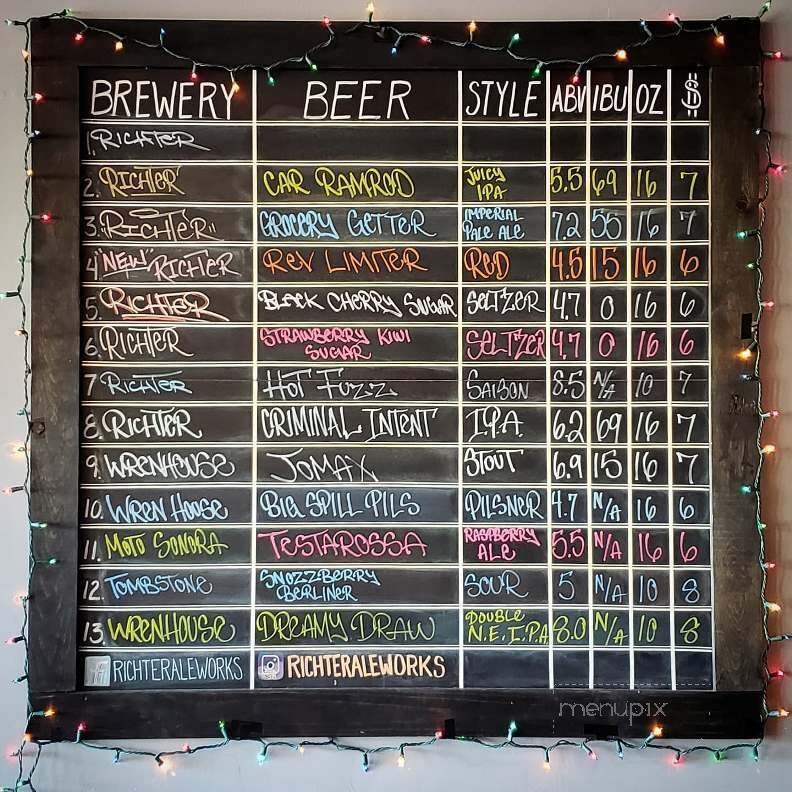 BREWERY BEER STYLE ABV IBU OZ $
1. RICHTER
2. RICHTER CAR RAMROD JUICY IPA 5.5 69 16 7
3. "RICHTER" GROCERY GETTER IMPERIAL PALE ALE 7.2 55 16 7
4 "NEW" RICHTER REV LIMITER RED 4.5 15 16 6
5. RICHTER BLACK CHERRY SUGAR SELTZER 4.7 0 16 6
6. RICHTER STRAWBERRY KIWI SUGAR SELTZER 4.7 0 16 6
7 RICHTER HOT FUZZ SAISON 8.5 N/A 10 7
8. RICHTER CRIMINAL INTENT I.P.A. 6.2 69 16 7
9. WRENHOUSE JOMAX STOUT 6.9 15 16 7
10. WREN HOUSE BIG SPILL PILS PILSNER 4.7 N/A 16 6
11. MOTO SONORA TESTAROSSA RASPBERRY ALE 5.5 N/A 16 6
12. TOMBSTONE SNOZZBERRY BERLINER SOUR 5 N/A 10 8
13. WRENHOUSE DREAMY DRAW DOUBLE N.E. I.PA 8.0 N/A 10 8
RICHTERALEWORKS RICHTERALEWORKS
menupix